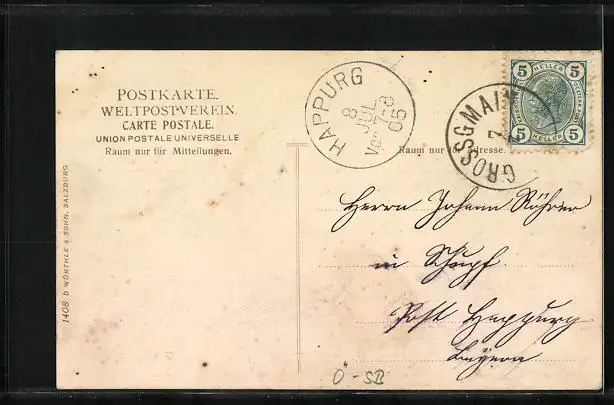 POSTKARTE.
WELTPOSTVEREIN.
CARTE POSTALE.
UNION POSTALE UNIVERSELLE
Raum nur für Mitteilungen.
1408 b WÜRTHLE & SOHN, SALZBURG.
HAPPURG
8
JUL
Vor 7-8
05
GROSSGMAIN
7
5 HELLER 5
5 HELLER 5
Raum nur für Adresse.
Herrn Johann
in Schupf
Post Happurg
Bayern
0 - SB